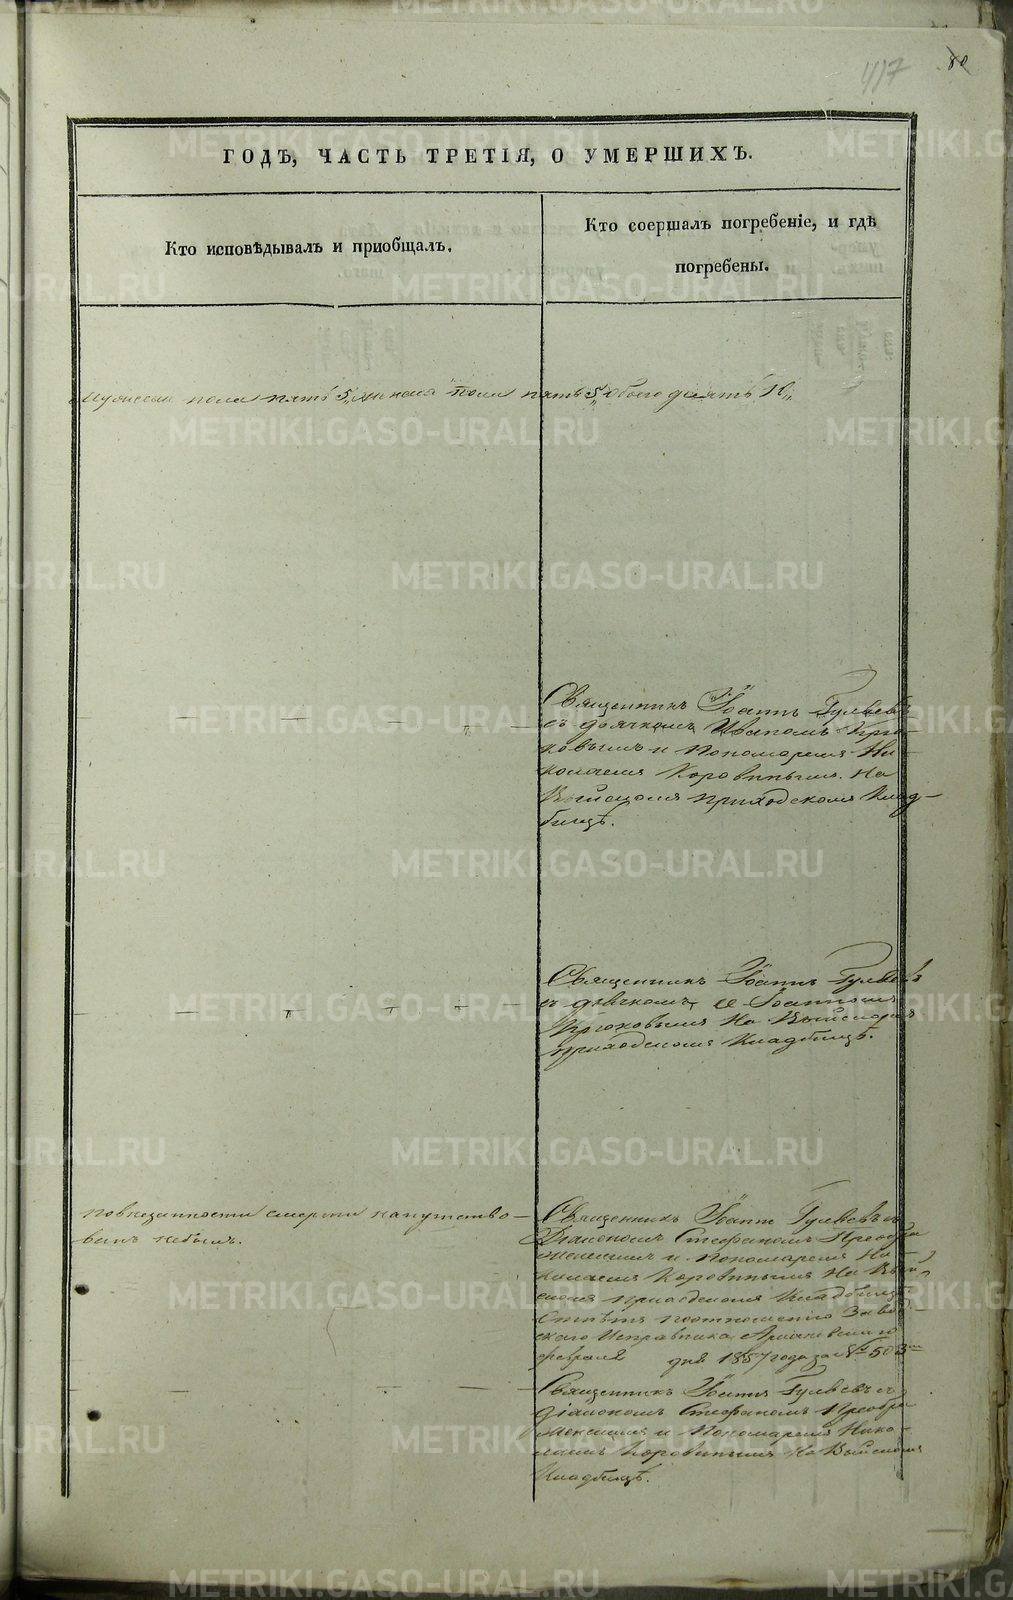 417
80
ГОДЪ, ЧАСТЬ ТРЕТІЯ, О УМЕРШИХЪ.
Кто исповѣдывалъ и приобщалъ.
Кто соершалъ погребеніе, и гдѣ
погребены.
мужеска пола пять 5„ женска пола пять 5„ обоего десять 10„
Священникъ Іоаннъ Гуляевъ
съ дьячкомъ Иваномъ Крю-
ковымъ и Пономаремъ Ни-
колаемъ Коровинымъ. На
Выйскомъ приходскомъ Клад-
бищѣ.
Священникъ Іоаннъ Гуляевъ
съ дьячкомъ Іоанномъ
Крюковымъ На Выйскомъ
приходскомъ Кладбищѣ.
по внезапности смерти напутство-
ванъ небылъ.
Священникъ Іоаннъ Гуляевъ съ
Діакономъ Стефаномъ Преобра
женскимъ и Пономаремъ Ни
колаемъ Коровинымъ На Вый
скомъ Кладбищѣ
по отношенію Завод
скаго Исправника
февраля дня 1857 года за № 503
Священникъ Іоаннъ Гуляевъ съ
Діакономъ Стефаномъ Преобра
женскимъ и Пономаремъ Нико-
лаемъ Коровинымъ На Выйскомъ
Кладбищѣ.
METRIKI.GASO-URAL.RU